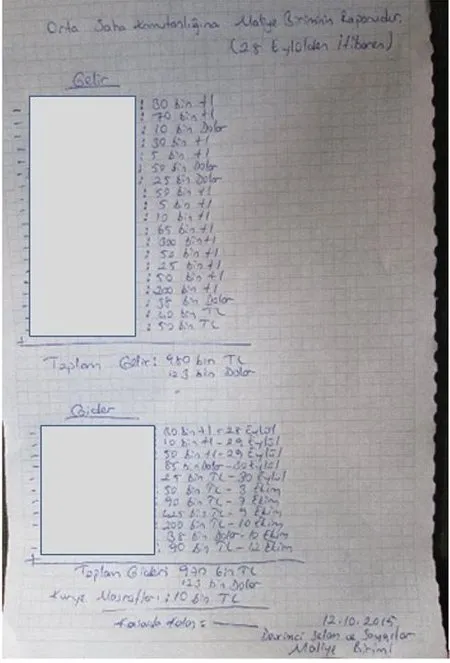 Orta Saha Komutanlığına Maliye Biriminin Raporudur.
(28 Eylülden İtibaren)
Gelir
: 30 bin tl
: 70 bin tl
: 10 bin Dolar
: 30 bin tl
: 5 bin tl
: 50 bin Dolar
: 25 bin Dolar
: 50 bin tl
: 5 bin tl
: 10 bin tl
: 65 bin tl
: 300 bin tl
: 50 bin tl
: 25 bin tl
: 50 bin tl
: 200 bin tl
: 38 bin Dolar
: 40 bin TL
: 50 bin TL
Toplam Gelir: 980 bin TL
123 bin Dolar
Gider
30 bin tl - 28 Eylül
10 bin tl - 29 Eylül
50 bin tl - 29 Eylül
85 bin Dolar - 30 Eylül
25 bin TL - 30 Eylül
50 bin TL - 3 Ekim
90 bin TL - 7 Ekim
425 bin TL - 9 Ekim
200 bin TL - 10 Ekim
38 bin Dolar - 10 Ekim
90 bin TL - 12 Ekim
Toplam Gider: 970 bin TL
123 bin Dolar
Kurye Masrafları: 10 bin TL
Kasada Kalan: —
12.10.2015
Devrimci Selam ve Saygılar
Maliye Birimi